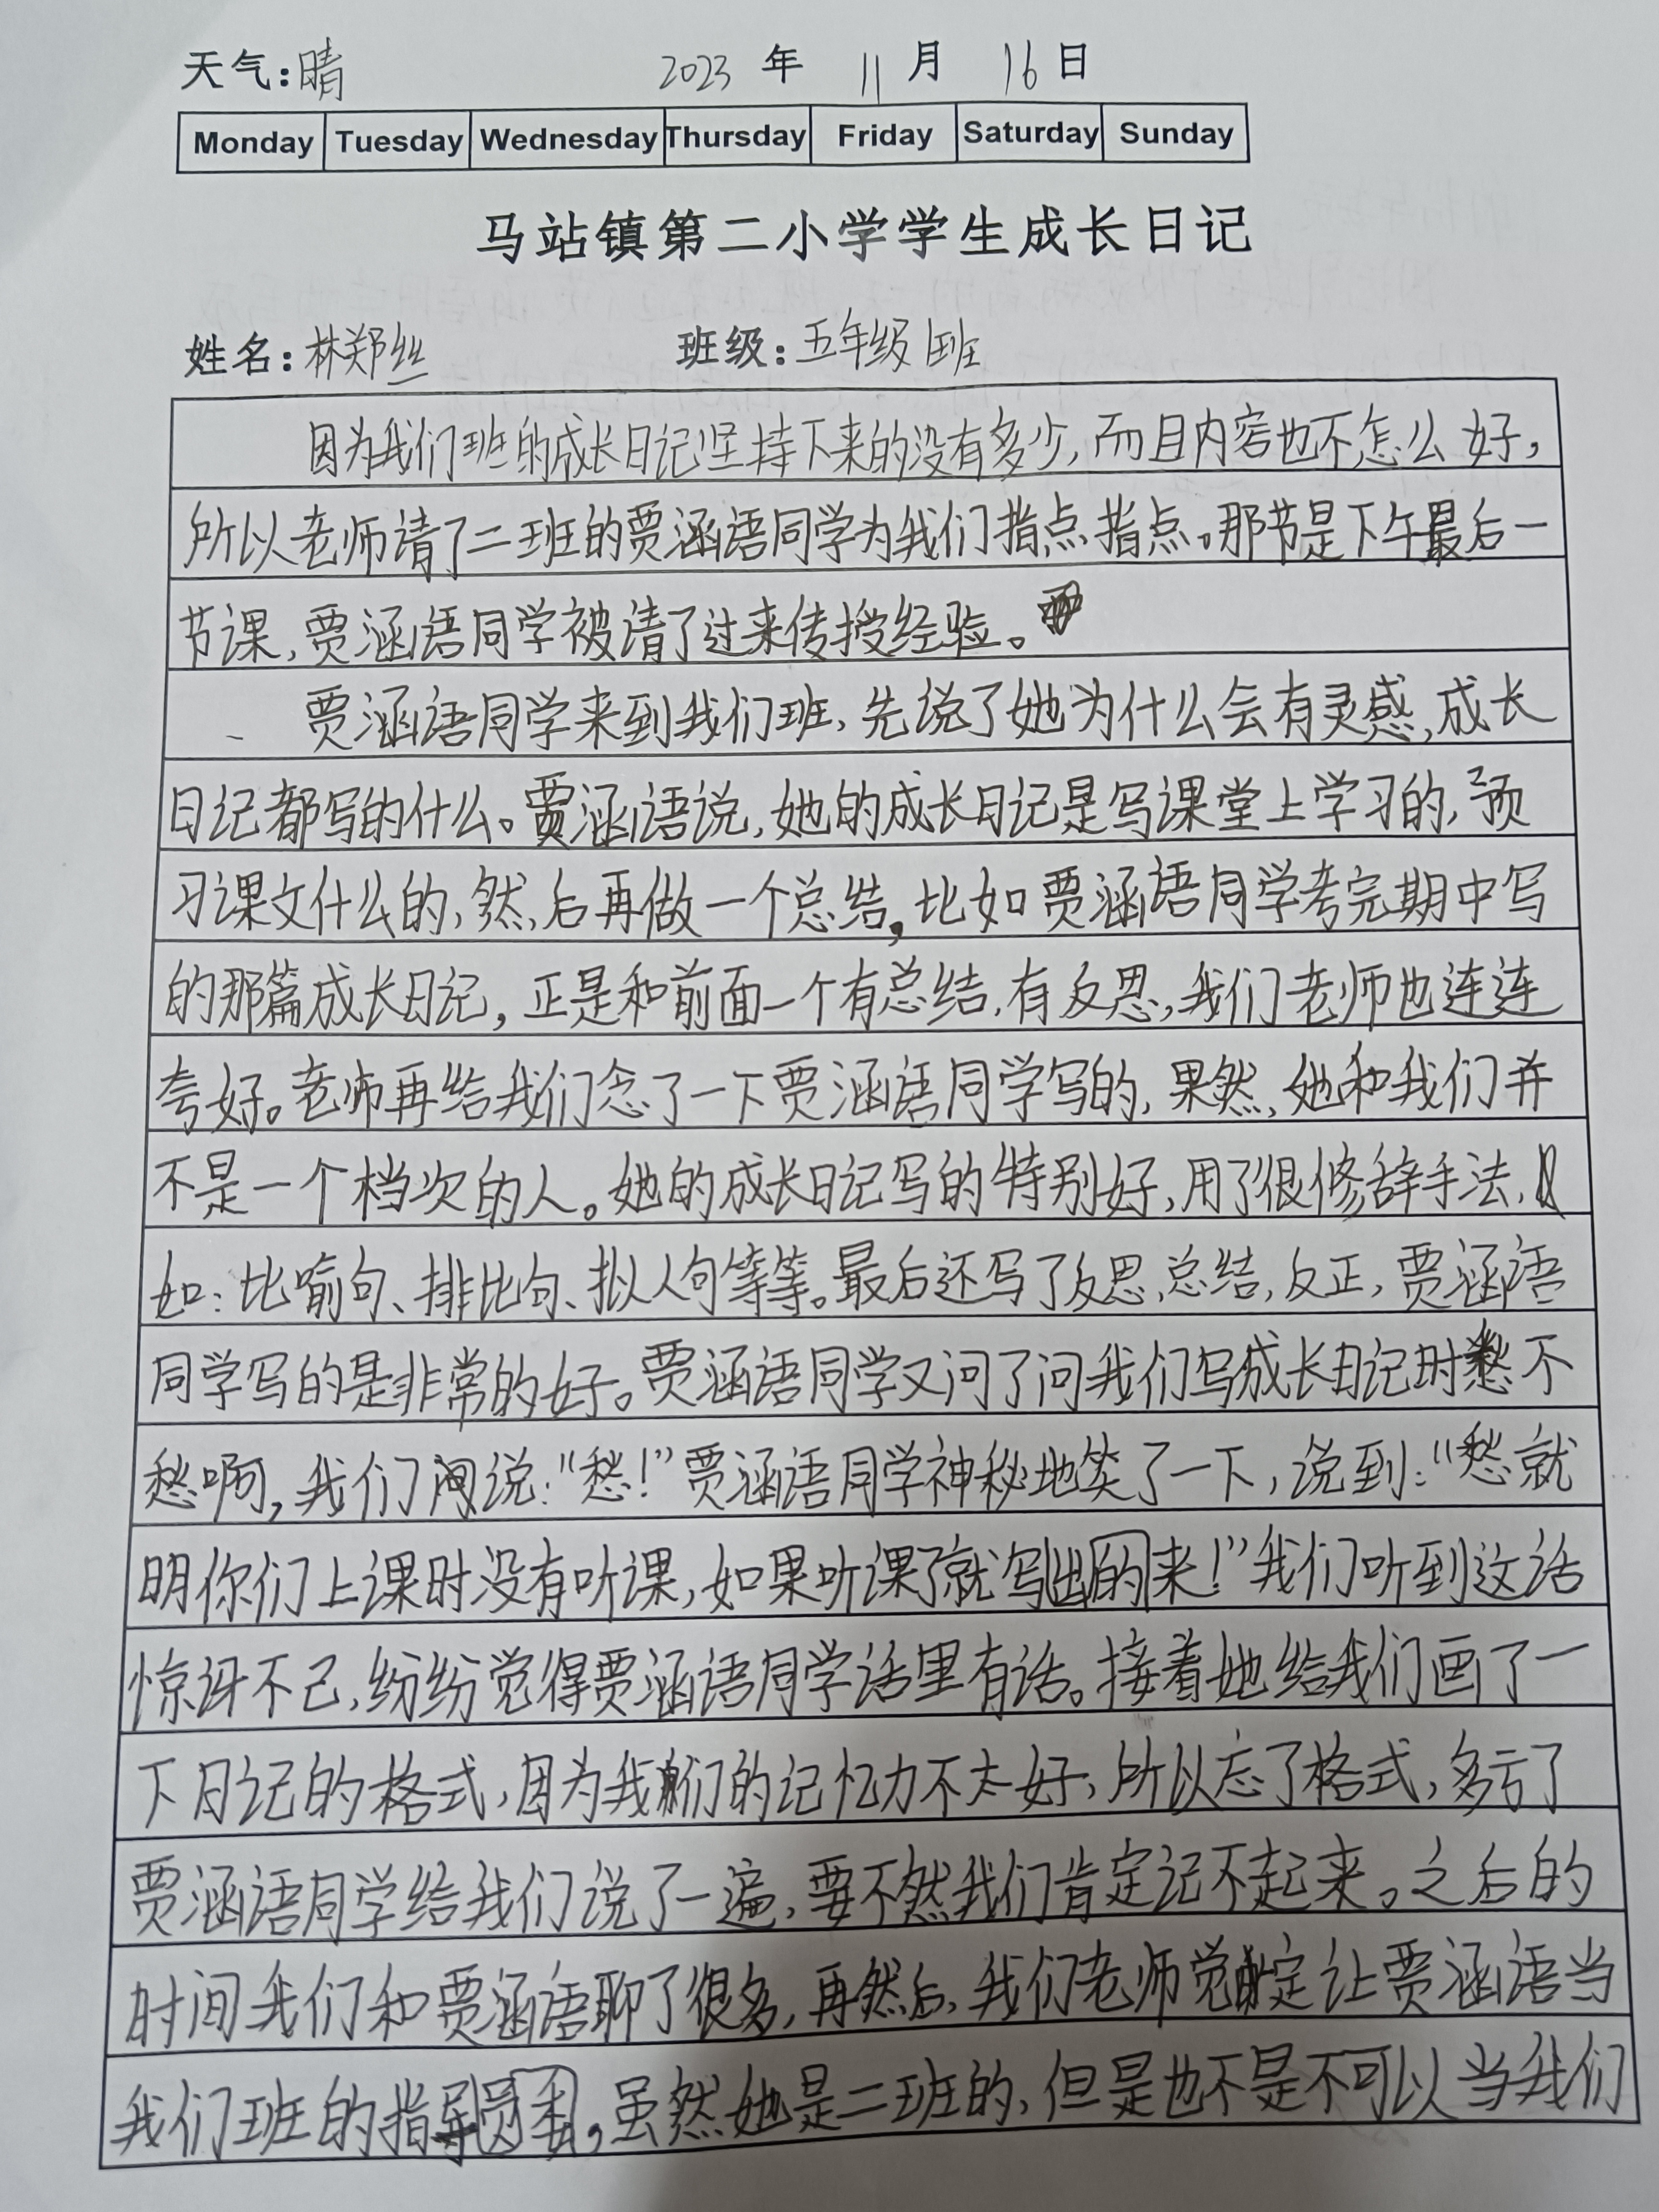 天气:晴 2023 年 11 月 16 日
Monday Tuesday Wednesday Thursday Friday Saturday Sunday
马站镇第二小学学生成长日记
姓名:林郑丝 班级:五年级1班
因为我们班的成长日记坚持下来的没有多少,而且内容也不怎么好,
所以老师请了二班的贾涵语同学为我们指点指点。那节是下午最后一
节课,贾涵语同学被请了过来传授经验。
贾涵语同学来到我们班,先说了她为什么会有灵感,成长
日记都写的什么。贾涵语说,她的成长日记是写课堂上学习的,预
习课文什么的,然后再做一个总结。比如贾涵语同学考完期中写
的那篇成长日记,正是和前面一个有总结,有反思,我们老师也连连
夸好。老师再给我们念了一下贾涵语同学写的,果然,她和我们并
不是一个档次的人。她的成长日记写的特别好,用了很修辞手法,
如:比喻句、排比句、拟人句等等。最后还写了反思,总结,反正,贾涵语
同学写的是非常的好。贾涵语同学又问了问我们写成长日记时愁不
愁啊,我们说:“愁!”贾涵语同学神秘地笑了一下,说到:“愁就
明你们上课时没有听课,如果听课了就写出的来!”我们听到这话
惊讶不已,纷纷觉得贾涵语同学话里有话。接着她给我们画了一
下日记的格式,因为我们的记忆力不太好,所以忘了格式,多亏了
贾涵语同学给我们说了一遍,要不然我们肯定记不起来。之后的
时间我们和贾涵语聊了很多,再然后,我们老师觉定让贾涵语当
我们班的指导员,虽然她是二班的,但是也不是不可以当我们